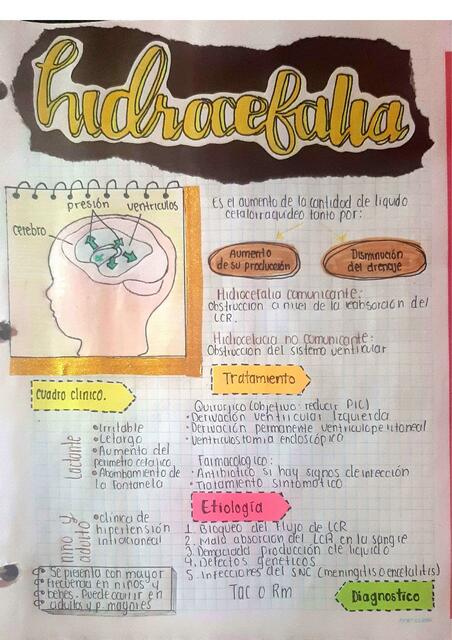 hidrocefalia
presión ventriculos
cerebro
Es el aumento de la cantidad de liquido
cefalorraquideo tanto por:
Aumento
de su producción
Disminución
del drenaje
Hidrocefalia comunicante:
Obstruccion a nivel de la reabsorcion del
LCR.
Hidrocefalia no comunicante:
Obstruccion del sistema ventricular
Cuadro clinico.
Lactante
•Irritable
•Letargo
•Aumento del
perimetro cefalico
•Abombamiento de
la Fontanela
niño y
adulto
•clínica de
hipertensión
intracraneal
Se presenta con mayor
frecuencia en niños y
bebes. Puede ocurrir en
adultos y p. mayores
Tratamiento
Quirurgico (objetivo: reducir PIC)
• Derivación ventricular Izquierda
• Derivación permanente ventriculoperitoneal
• Ventriculostomia endoscópica
Farmacologico:
• Antibiótico si hay signos de infección
• Tratamiento sintomatico
Etiología
1. Bloqueo del flujo de LCR
2. Mala absorcion del LCR en la sangre
3. Demasiada producción de liquido
4. Defectos genéticos
5. Infecciones del SNC (meningitis o encefalitis)
Tac o Rm
Diagnostico